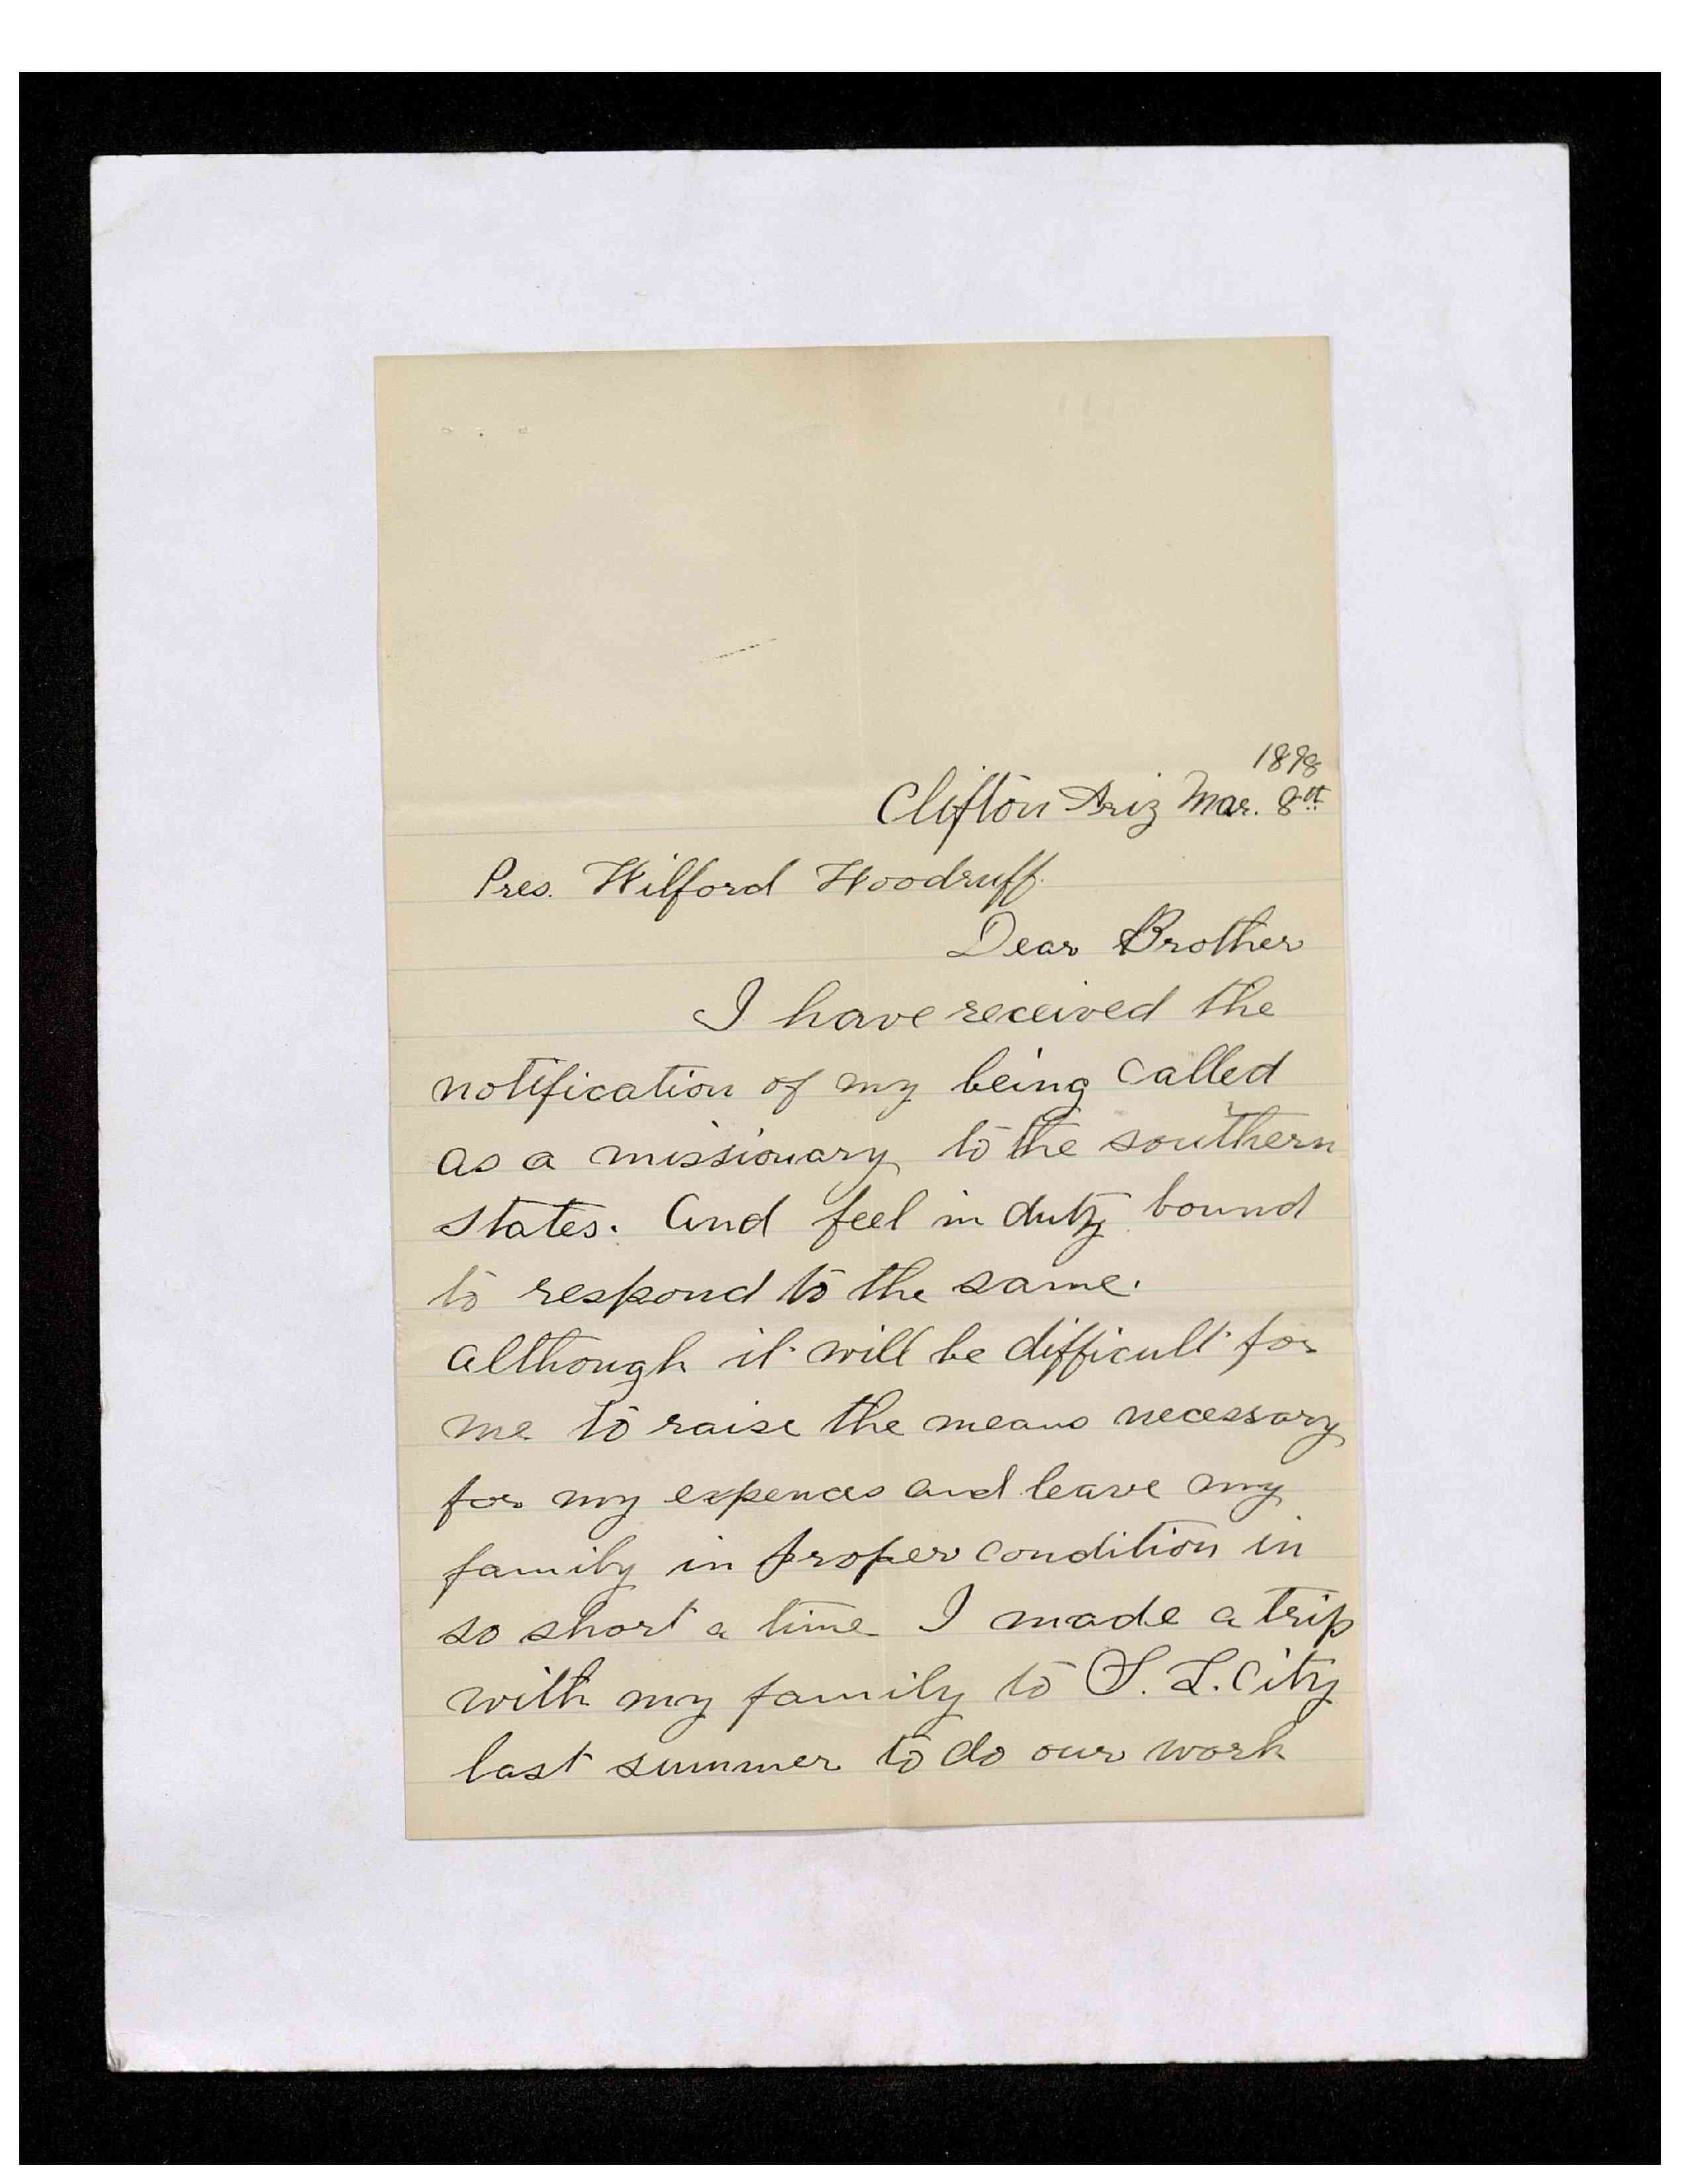 1898
Clifton Ariz Mar. 8th
Pres. Wilford Woodruff.
Dear Brother
I have received the
notification of my being called
as a missionary to the southern
states. And feel in duty bound
to respond to the same.
although it will be difficult for
me to raise the means necessary
for my expences and leave my
family in proper condition in
so short a time I made a trip
with my family to S. L. City
last summer to do our work